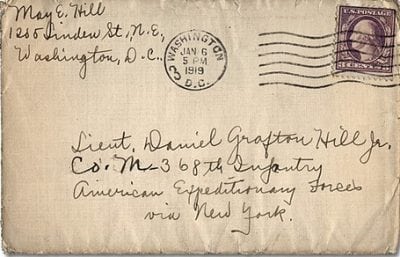 May E. Hill
1255 Linden St., N.E.,
Washington, D.C.
WASHINGTON
JAN 6
5 PM
1919
D.C.
U.S. POSTAGE
Lieut. Daniel Grafton Hill Jr.
Co. M-368th Infantry
American Expeditionary Forces
via New York.